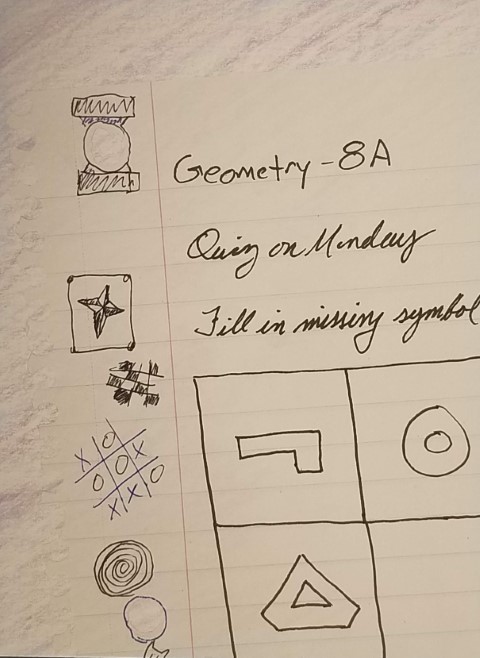 Geometry - 8A
Quiz on Monday
Fill in missing symbol
O
X O X
O O
X X